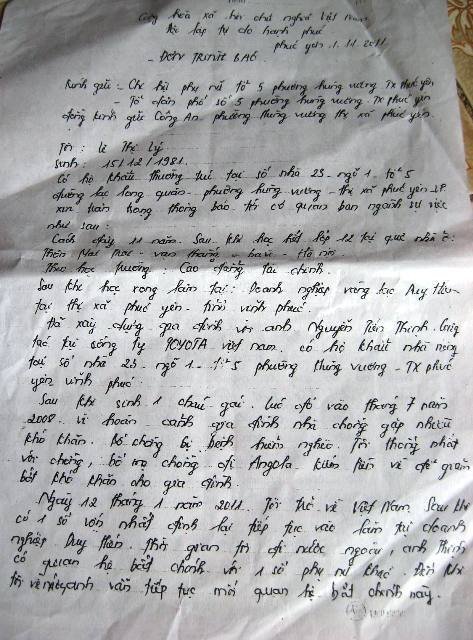 Cộng hòa xã hội chủ nghĩa Việt Nam
Độc lập tự do hạnh phúc
phúc yên 1.11.2011
- ĐƠN TRÌNH BÁO
Kính gửi - Chi hội phụ nữ tổ 5 phường hùng vương TX phúc yên
- Tổ dân phố số 5 phường hùng vương. TX phúc yên
đồng kính gửi Công An phường hùng vương thị xã phúc yên.
Tôi : Lê Thị Lý
Sinh : 15/12/1981.
Có hộ khẩu thường trú tại số nhà 23 - ngõ 1 - tổ 5
đường lạc long quân - phường hùng vương - thị xã phúc yên - VP.
xin trân trọng thông báo tới cơ quan ban ngành sự việc
như sau :
Cách đây 11 năm. Sau khi học hết lớp 12 tại quê nhà ở:
Thôn - vạn thắng - bavì - Hà nội.
Theo học trường : Cao đẳng tài chính.
Sau khi học xong làm tại : Doanh nghiệp vàng bạc Duy Hiển
tại thị xã phúc yên - tỉnh vĩnh phúc.
Đã xây dựng gia đình với anh Nguyễn Tiến Thịnh. Công
tác tại công ty TOYOTA việt nam. có hộ khẩu nhà riêng
tại số nhà 23 - ngõ 1 - tổ 5 phường Hùng vương - TX phúc
yên vĩnh phúc.
Sau khi sinh 1 cháu gái. lúc đó vào tháng 7 năm
2008. vì hoàn cảnh gia đình nhà chồng gặp nhiều
khó khăn. bố chồng bị bệnh hiểm nghèo. Tôi thống nhất
với chồng, bố mẹ chồng đi Angola kiếm tiền về để giảm
bớt khó khăn cho gia đình.
Ngày 12 tháng 1 năm 2011. Tôi trở về Việt Nam. Sau khi
có 1 số vốn nhất định lại tiếp tục vào làm tại doanh
nghiệp Duy Hiển. Thời gian tôi đi nước ngoài, anh Thịnh
có quan hệ bất chính với 1 số phụ nữ khác. Đến khi
tôi về anh vẫn tiếp tục mối quan hệ bất chính này.